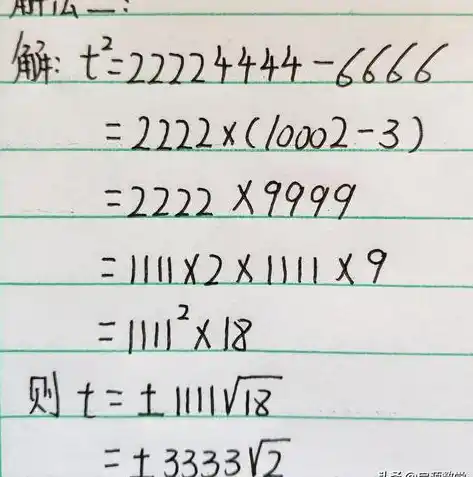 解法二:
解: t²=22224444-6666
=2222×(10002-3)
=2222×9999
=1111×2×1111×9
=1111²×18
则 t=±1111√18
=±3333√2